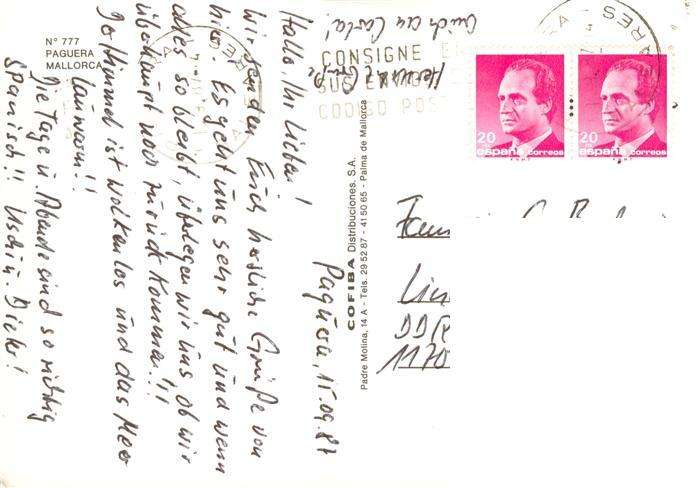 Nº 777
PAGUERA
MALLORCA
Paguera, 15.09.87
Hallo, Ihr Lieben!
Wir senden Euch herzliche Grüße von
hier. Es geht uns sehr gut und wenn
alles so bleibt, überlegen wir uns, ob wir
überhaupt noch zurück kommen!!!
Der Himmel ist wolkenlos und das Meer
lauwarm!!
Die Tage u. Abende sind so richtig
Spanisch!! Uschi u. Dieter!
Grüße
auch an Carla!
COFIBA Distribuciones, S.A.
Padre Molina, 14 A - Tels. 29 52 87 - 41 50 65 - Palma de Mallorca
CONSIGNE
SUS ENVIOS
CODIGO POST
20
españa correos
20
españa correos
Fam
DDR
1170